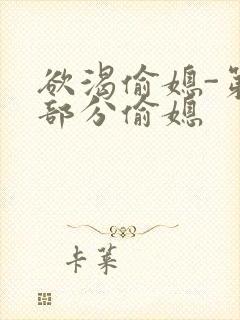 欲渴偷媳-第
部分偷媳
卡莱